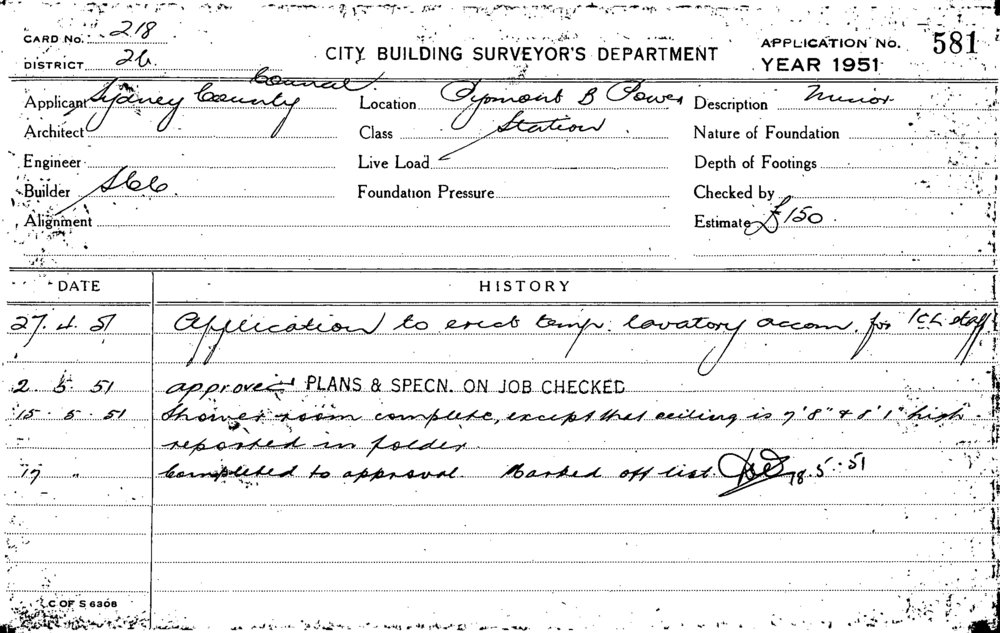 CARD No. 218
DISTRICT 26.
CITY BUILDING SURVEYOR'S DEPARTMENT
APPLICATION No. 581
YEAR 1951
Applicant Sydney County Council
Location Pyrmont B Power Station
Description Minor
Architect
Class
Nature of Foundation
Engineer
Live Load
Depth of Footings
Builder SCC.
Foundation Pressure
Checked by
Alignment
Estimate £150
DATE HISTORY
27. 4. 51 Application to erect temp. lavatory accom. for staff
2. 5. 51 approved PLANS & SPECN. ON JOB CHECKED
15. 5. 51 Shower room complete, except that ceiling is 7'8" & 8'1" high
reported in folder
17 " Completed to approval. Marked off list. 18.5.51
C OF S 6308